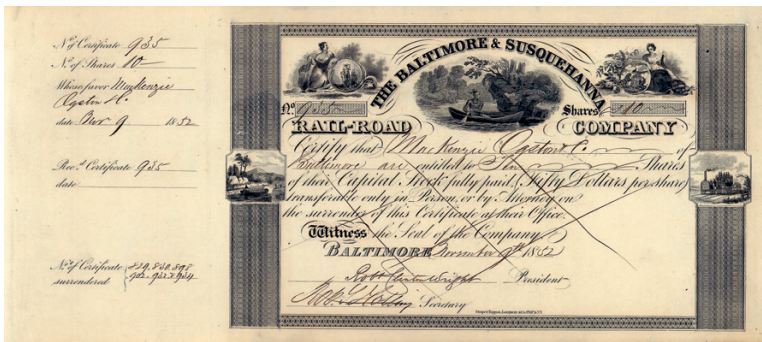 No. of Certificate 935
No. of Shares 10
Whose favor MacKenzie
Ogston & C.
date Nov 9 1852
Rec.d Certificate 935
date
No. of Certificate
surrendered
THE BALTIMORE & SUSQUEHANNA
No. 935
Shares 10
RAIL-ROAD COMPANY
Certify that MacKenzie Ogston & C. of
Baltimore are entitled to Ten Shares
of their Capital Stock fully paid (Fifty Dollars per share)
transferable only in Person, or by Attorney on
the surrender of this Certificate at their Office.
Witness the Seal of the Company
BALTIMORE November 9th 1852
Robt Clinton Wright President
Secretary